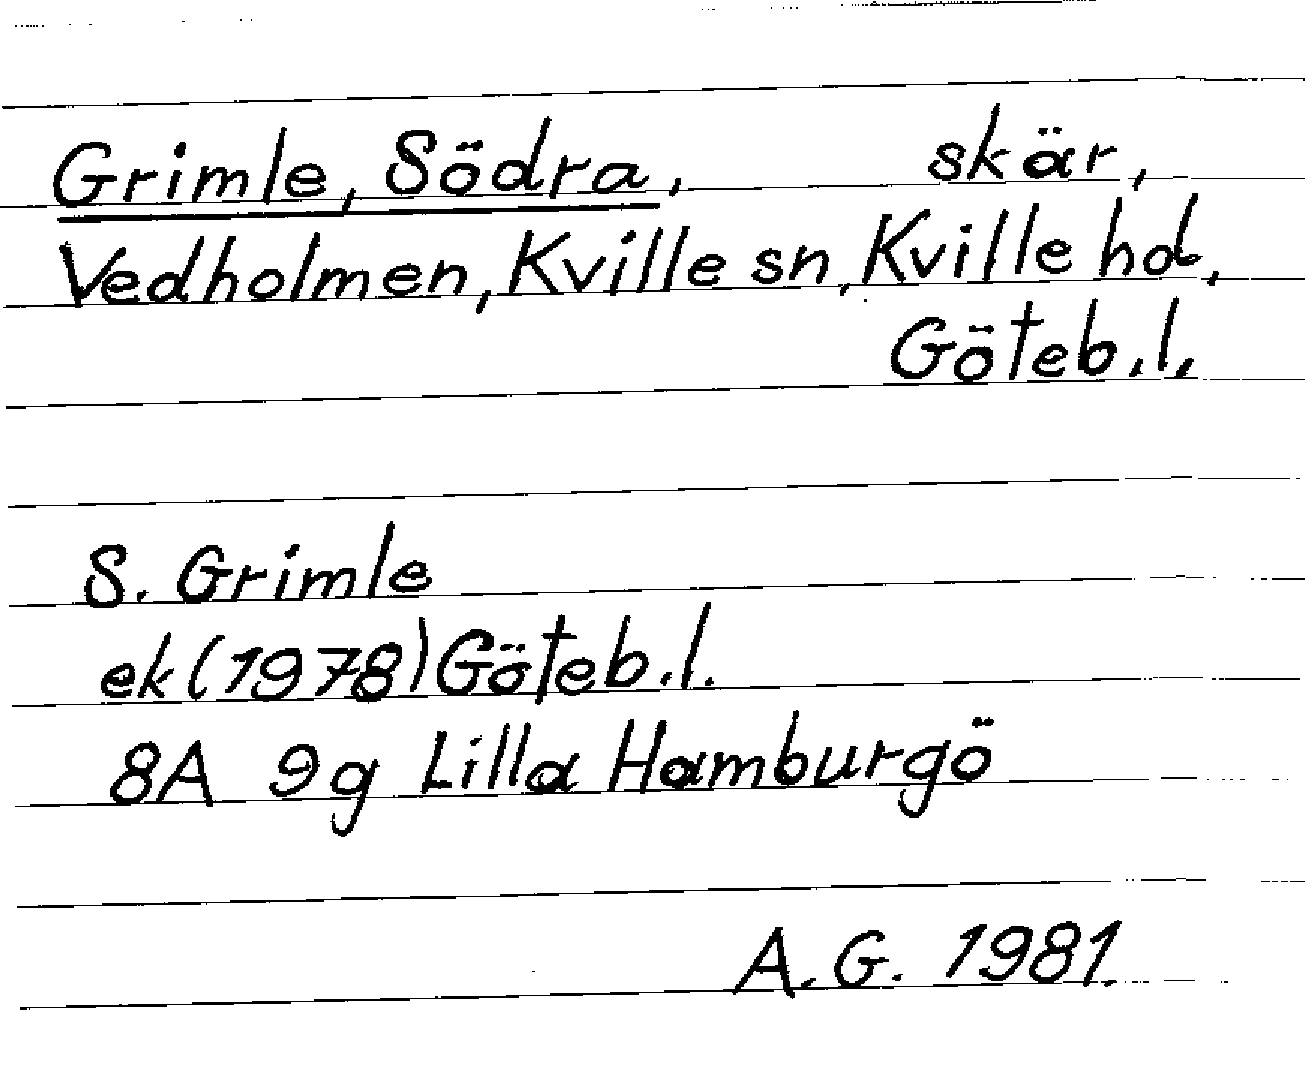 Grimle, Södra, skär,
Vedholmen, Kville sn, Kville hd,
Göteb. l.
S. Grimle
ek (1978) Göteb. l.
8A 9g Lilla Hamburgö
A. G. 1981.